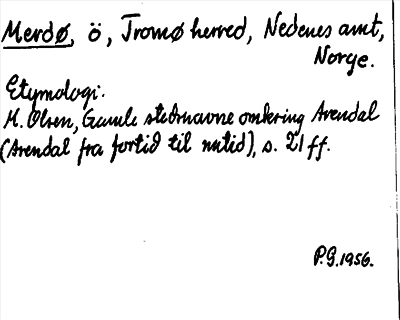 Merdø, ö, Tromø herred, Nedenes amt,
Norge.
Etymologi.
M. Olsen, Gamle stedsnavne omkring Arendal
(Arendal fra fortid til nutid), s. 21 ff.
P.G. 1956.